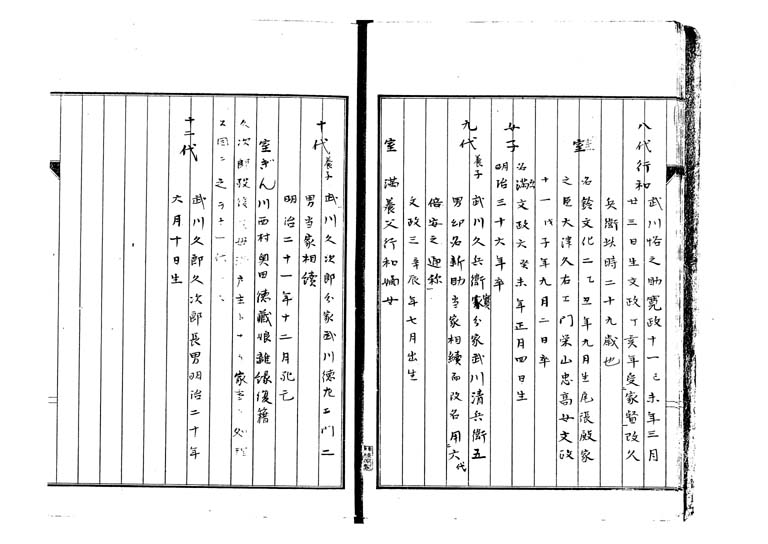 八代行和 武川恪之助寛政十一己未年三月
廿三日生文政丁亥年受家督改久
兵衛妹時二十九歳也
室 名鈴文化二乙丑年九月生尾張殿家
之臣大津久右エ門栄山忠高女文政
十一戊子年九月二日卒
女子 名満文政六癸未年正月四日生
明治三十六年卒
九代 養子 武川久兵衛分家武川清兵衛五
男幼名新助当家相続而改名用六代
倍安之通称
文政三庚辰年七月出生
室 満養父行和嫡女
十代 養子 武川久次郎分家武川徳左エ門二
男当家相続
明治二十一年十二月死亡
室ぎん川西村奥田徳蔵娘離縁復籍
久次郎 家 処理
十二代 武川久郎久次郎長男明治二十年
六月十日生